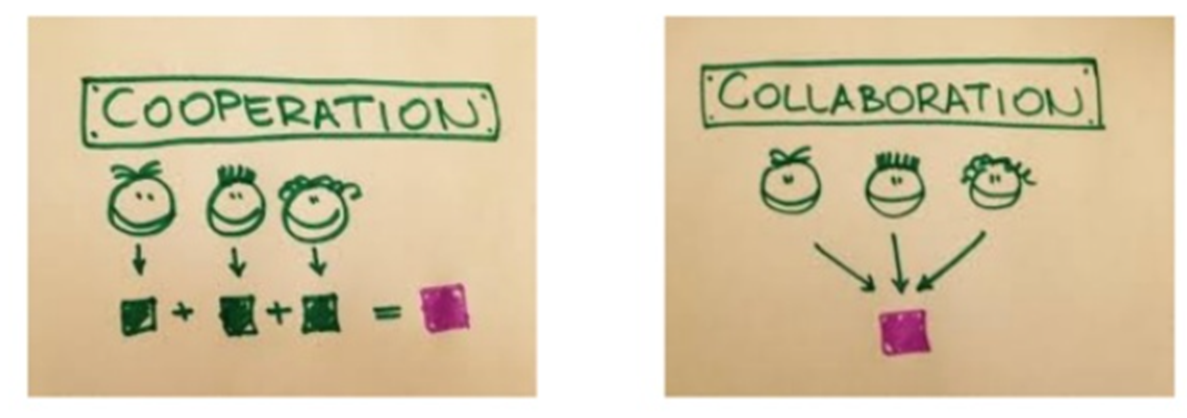 COOPERATION
+ + =
COLLABORATION